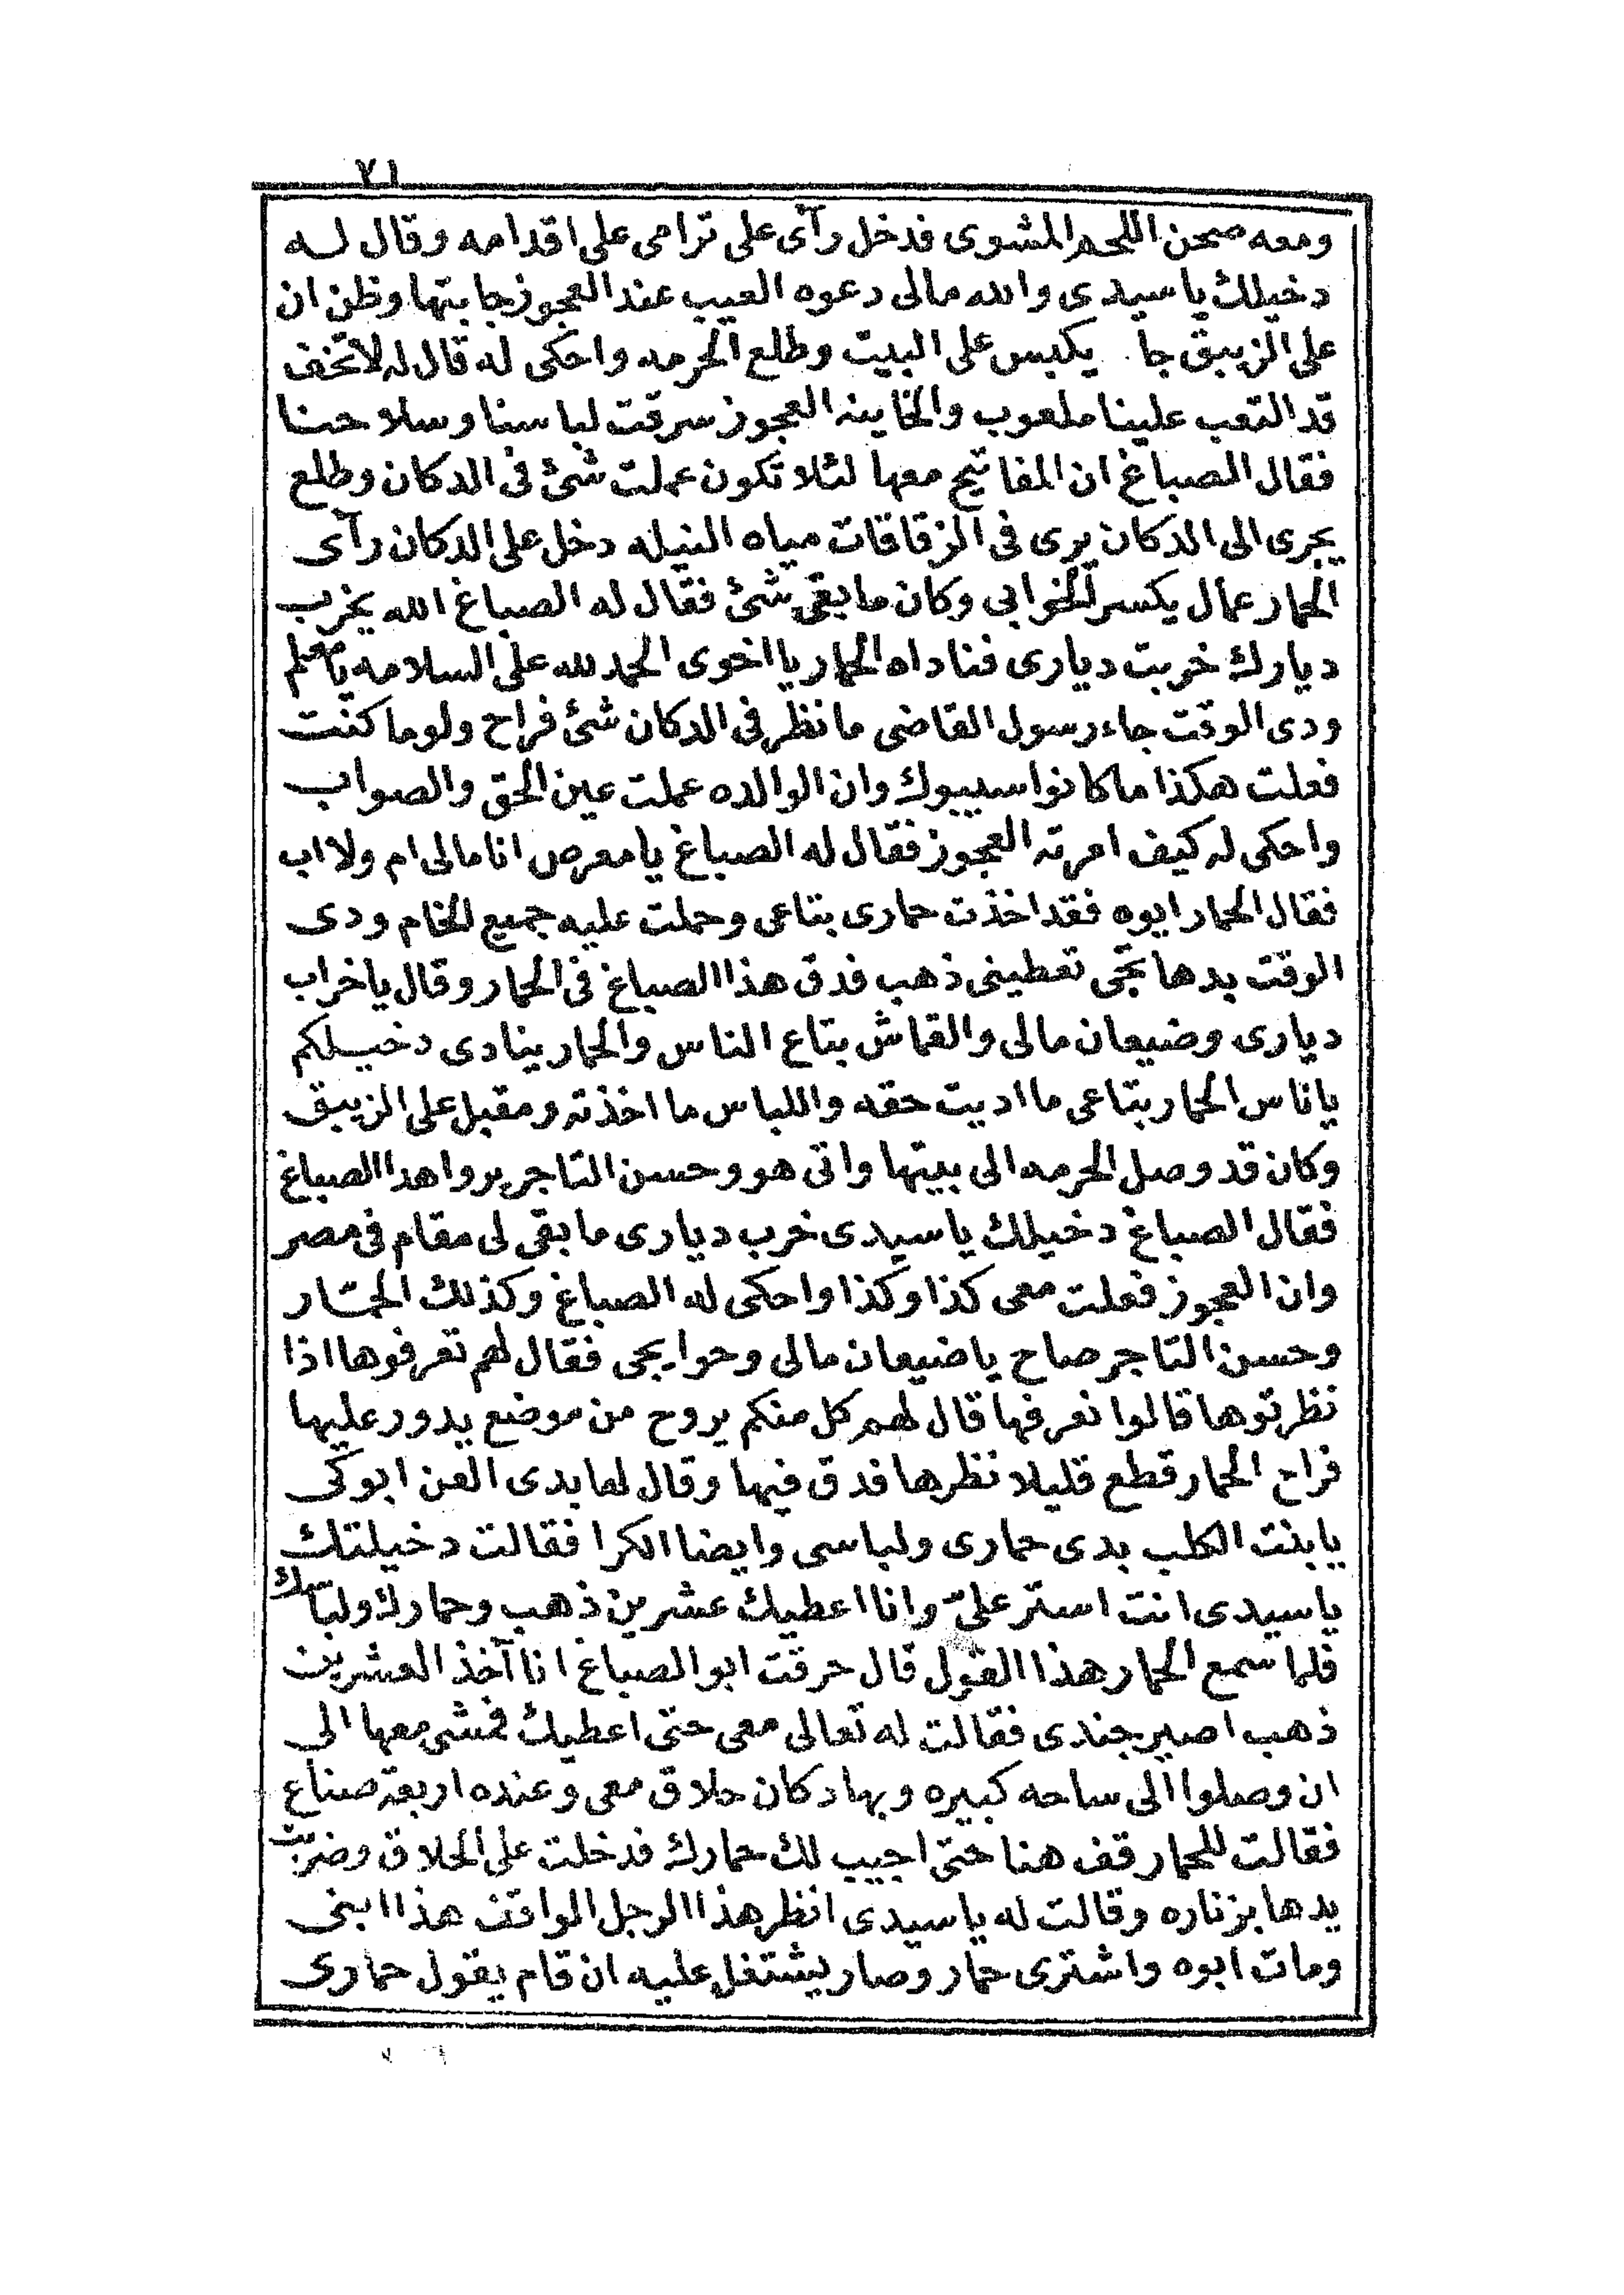 ٧١
ومعه صحن اللحم المشوى فدخل رآى على ترامى على اقدامه وقال له
دخيلك يا سيدى والله مالى دعوه العيب عند العجوز جابتها وظن ان
على الزيبق جا يكبس على البيت وطلع الحرمه واحكى له قال له لا تخف
قد التعب علينا ملعوب والخاينه العجوز سرقت لباسنا وسلاحنا
فقال الصباغ ان المفاتيح معها لئلا تكون عملت شئ فى الدكان وطلع
يجرى الى الدكان يرى فى الزقاقات مياه النيله دخل على الدكان رآى
الحمار عمال يكسر الخوابى وكان ما بقى شئ فقال له الصباغ الله يخرب
ديارك خربت ديارى فناداه الحمار يا اخوى الحمد لله على السلامه يا معلم
ودى الوقت جاء رسول القاضى ما نظر فى الدكان شئ فراح ولو ما كنت
فعلت هكذا ما كانوا سيبوك وان الوالده عملت عين الحق والصواب
واحكى له كيف امرته العجوز فقال له الصباغ يا معرص انا مالى ام ولا اب
فقال الحمار ايوه فقد اخذت حمارى بتاعى وحملت عليه جميع الخام ودى
الوقت بدها تجى تعطينى ذهب فدق هذا الصباغ فى الحمار وقال يا خراب
ديارى وضيعان مالى والقماش بتاع الناس والحمار ينادى دخيلكم
يا ناس الحمار بتاعى ما اديت حقه واللباس ما اخذته ومقبل على الزيبق
وكان قد وصل الحرمه الى بيتها واتى هو وحسن التاجر يروا هدا الصباغ
فقال الصباغ دخيلك يا سيدى خرب ديارى ما بقى لى مقام فى مصر
وان العجوز فعلت معى كذا وكذا واحكى له الصباغ وكذلك الحمّار
وحسن التاجر صاح يا ضيعان مالى وحوايجى فقال لهم تعرفوها اذا
نظرتوها قالوا نعرفها قال لهم كل منكم يروح من موضع يدور عليها
فراح الحمار قطع قليلا نظرها فدق فيها وقال لها بدى العن ابوكى
يا بنت الكلب بدى حمارى ولباسى وايضا الكرا فقالت دخيلتك
يا سيدى انت استر علىّ وانا اعطيك عشرين ذهب وحمارك ولباسك
فلما سمع الحمار هذا القول قال حرقت ابو الصباغ انا آخذ العشرين
ذهب اصير جندى فقالت له تعالى معى حتى اعطيك فمشى معها الى
ان وصلوا الى ساحه كبيره وبها دكان حلاق معى وعنده اربعة صناع
فقالت للحمار قف هنا حتى اجيب لك حمارك فدخلت على الحلاق وضربت
يدها بزناره وقالت له يا سيدى انظر هذا الرجل الواقف هذا ابنى
ومات ابوه واشترى حمار وصار يشتغل عليه ان قام يقول حمارى